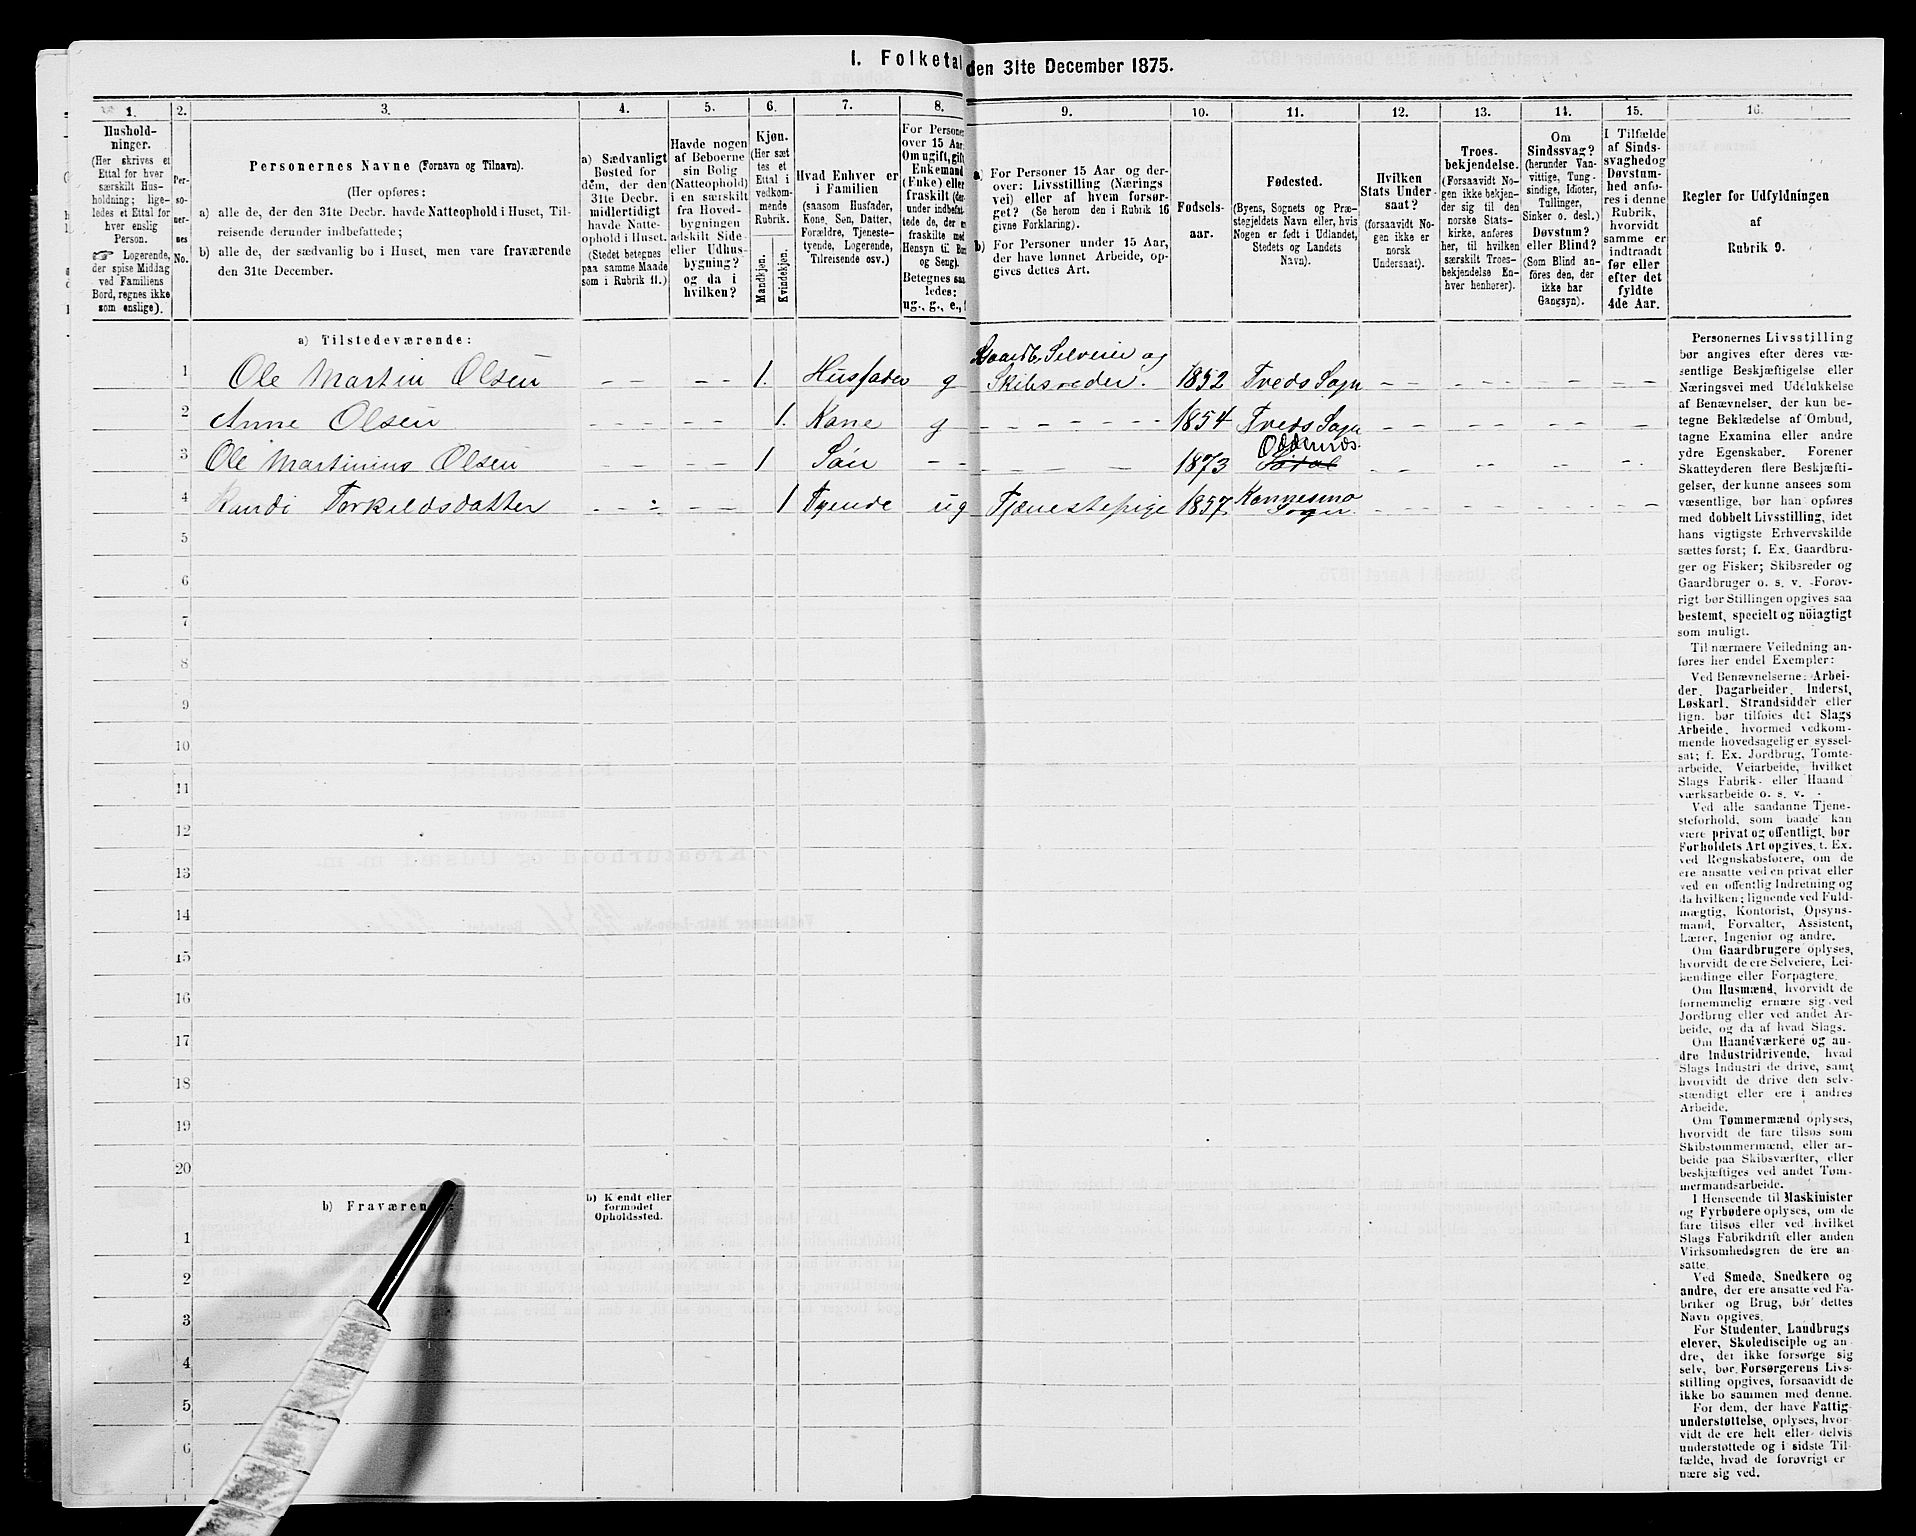 I. Folketal
den 31te December 1875.
1.
Hushold-
ninger.
(Her skrives et
Ettal for hver
særskilt Hus-
holdning; lige-
ledes et Ettal for
hver enslig
Person.
Logerende,
der spise Middag
ved Familiens
Bord, regnes ikke
som enslige).
2.
Per-
so-
ner-
nes
No.
3.
Personernes Navne (Fornavn og Tilnavn).
(Her opføres:
a) alle de, der den 31te Decbr. havde Natteophold i Huset, Til-
reisende derunder indbefattede;
b) alle de, der sædvanlig bo i Huset, men vare fraværende
den 31te December.
4.
a) Sædvanligt
Bosted for
dem, der den
31te Decbr.
midlertidigt
havde Natte-
ophold i Huset.
(Stedet betegnes
paa samme Maade
som i Rubrik 11.)
5.
Havde nogen
af Beboerne
sin Bolig
(Natteophold)
i en særskilt
fra Hoved-
bygningen
adskilt Side-
eller Udhus-
bygning?
og da i
hvilken?
6.
Kjøn.
(Her sæt
tes et
Ettal i
vedkom-
mende
Rubrik.
Mandkjøn.
Kvindekjøn.
7.
Hvad Enhver er
i Familien
(saasom Husfader,
Kone, Søn, Datter,
Forældre, Tjeneste-
tyende, Logerende,
Tilreisende osv.)
8.
For Personer
over 15 Aar:
Om ugift, gift,
Enkemand
(Enke) eller
fraskilt (der-
under indbefat-
tede de, der ere
fraskilte med
Hensyn til Bord
og Seng).
Betegnes saa-
ledes:
ug., g., e.,
9.
a) For Personer 15 Aar og der-
over: Livsstilling (Nærings
vei) eller af hvem forsør-
get? (Se herom den i Rubrik 16
givne Forklaring).
b) For Personer under 15 Aar,
der have lønnet Arbeide, op-
gives dettes Art.
10.
Fødsels-
aar.
11.
Fødested.
(Byens, Sognets og Præ-
stegjeldets Navn eller, hvis
Nogen er født i Udlandet,
Stedets og Landets
Navn).
12.
Hvilken
Stats Under-
saat?
(forsaavidt No-
gen ikke er
norsk
Undersaat).
13.
Troes-
bekjendelse.
(Forsaavidt No-
gen ikke bekjen-
der sig til den
norske Stats-
kirke, anføres
her, til hvilken
særskilt Troes-
bekjendelse En-
hver henhører).
14.
Om
Sindssvag?
(herunder Van-
vittige, Tung-
sindige, Idioter,
Tullinger,
Sinker o. desl.)
Døvstum?
eller Blind?
(Som Blind an-
føres den, der
ikke har
Gangsyn).
15.
I Tilfælde
af Sinds-
svaghed og
Døvstum-
hed anfø-
res i denne
Rubrik,
hvorvidt
samme er
indtraadt
før eller
efter det
fyldte
4de Aar.
16.
Regler for Udfyldningen
af
Rubrik 9.
a) Tilstedeværende:
Gaardb. Selveier og
1 Ole Martin Olsen – – – – 1. Husfader g Skibsreder. 1852 Tveds Sogn – – – –
2 Anne Olsen – – – – 1. Kone g – – – – – 1854 Tveds Sogn – – – –
Oddernes
3 Ole Martinius Olsen – – – – 1 Søn – – – – – – 1873 – – – –
4 Randi Torkildsdatter – – 1 Tyende ug Tjenestepige 1857. Kannesmo – – – –
Sogn
5
6
7
8
9
10
11
12
13
14
15
16
17
18
19
20
b) Fraværende:
b) Kjendt eller
formodet
Opholdssted.
1
2
3
4
5
6
Personernes Livsstilling
bør angives efter deres væ-
sentlige Beskjæftigelse eller
Næringsvei med Udelukkelse
af Benævnelser, der kun be-
tegne Beklædelse af Ombud,
tagne Examina eller andre
ydre Egenskaber. Forener
Skatteyderen flere Beskjæfti-
gelser, der kunne ansees som
væsentlige, bør han opføres
med dobbelt Livsstilling, idet
hans vigtigste Erhvervskilde
sættes først; f. Ex. Gaardbru-
ger og Fisker; Skibsreder og
Gaardbruger o. s. v. Forøv-
rigt bør Stillingen opgives saa
bestemt, specielt og nöiagtigt
som muligt.
Til nærmere Veiledning an-
føres her endel Exempler:
Ved Benævnelserne: Arbei-
der, Dagarbeider, Inderst,
Løskarl, Strandsidder eller
lign. bør tilføies det Slags
Arbeide, hvormed vedkom-
mende hovedsagelig er syssel-
sat; f. Ex. Jordbrug, Tomte-
arbeide, Veiarbeide, hvilket
Slags Fabrik- eller Haand
værksarbeide o. s. v.
Ved alle saadanne Tjene-
steforhold, som baade kan
være privat og offentligt, bør
Forholdets Art opgives, t. Ex.
ved Regnskabsførere, om de
ere ansatte ved en privat eller
ved en offentlig Indretning og
da hvilken; lignende ved Fuld-
mægtig, Kontorist, Opsyns-
mand, Forvalter, Assistent,
Lærer, Ingeniør og andre.
Om Gaardbrugere oplyses,
hvorvidt de ere Selveiere, Lei-
lændinge eller Forpagtere.
Om Husmænd, hvorvidt de
fornemmelig ernære sig ved
Jordbrug eller ved andet Ar-
beide, og da af hvad Slags.
Om Haandværkere og an-
dre Industridrivende, hvad
Slags Industri de drive, samt
hvorvidt de drive den selv-
stændigt eller ere i andres
Arbeide.
Om Tømmermænd oplyses,
hvorvidt de fare tilsøs som
Skibstømmermænd, eller ar-
beide paa Skibsværfter, eller
beskjæftiges ved andet Tøm-
mermandsarbeide.
I Henseende til Maskinister
og Fyrbødere oplyses, om de
fare tilsøs eller ved hvilket
Slags Fabrikdrift eller anden
Virksomhedsgren de ere an-
satte.
Ved Smede, Snedkere og
andre, der ere ansatte ved Fa-
briker og Brug, bør dettes
Navn opgives.
For Studenter, Landbrugs
elever, Skoledisciple og an-
dre, der ikke forsørge sig
selv, bør Forsørgerens Livs-
stilling opgives, forsaavidt de
ikke bo sammen med denne.
For dem, der have Fattig-
understøttelse, oplyses, hvor-
vidt de ere helt eller delvis
understøttede og i sidste Til-
fælde, hvad de forøvrigt er
nære sig ved.